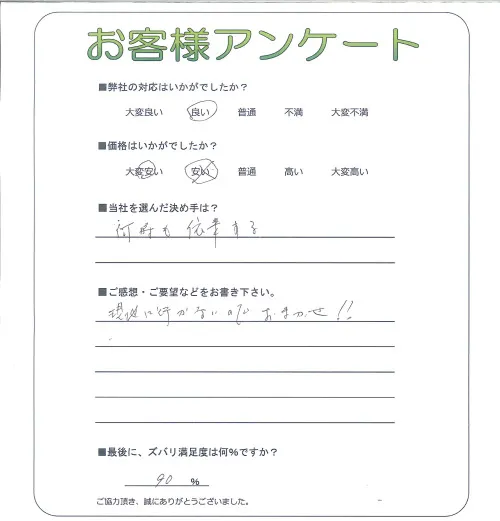 お客様アンケート
■弊社の対応はいかがでしたか？
大変良い 良い 普通 不満 大変不満
■価格はいかがでしたか？
大変安い 安い 普通 高い 大変高い
■当社を選んだ決め手は？
何時も依頼する
■ご感想・ご要望などをお書き下さい。
現地に行かないのでおまかせ!!
■最後に、ズバリ満足度は何%ですか？
90 %
ご協力頂き、誠にありがとうございました。